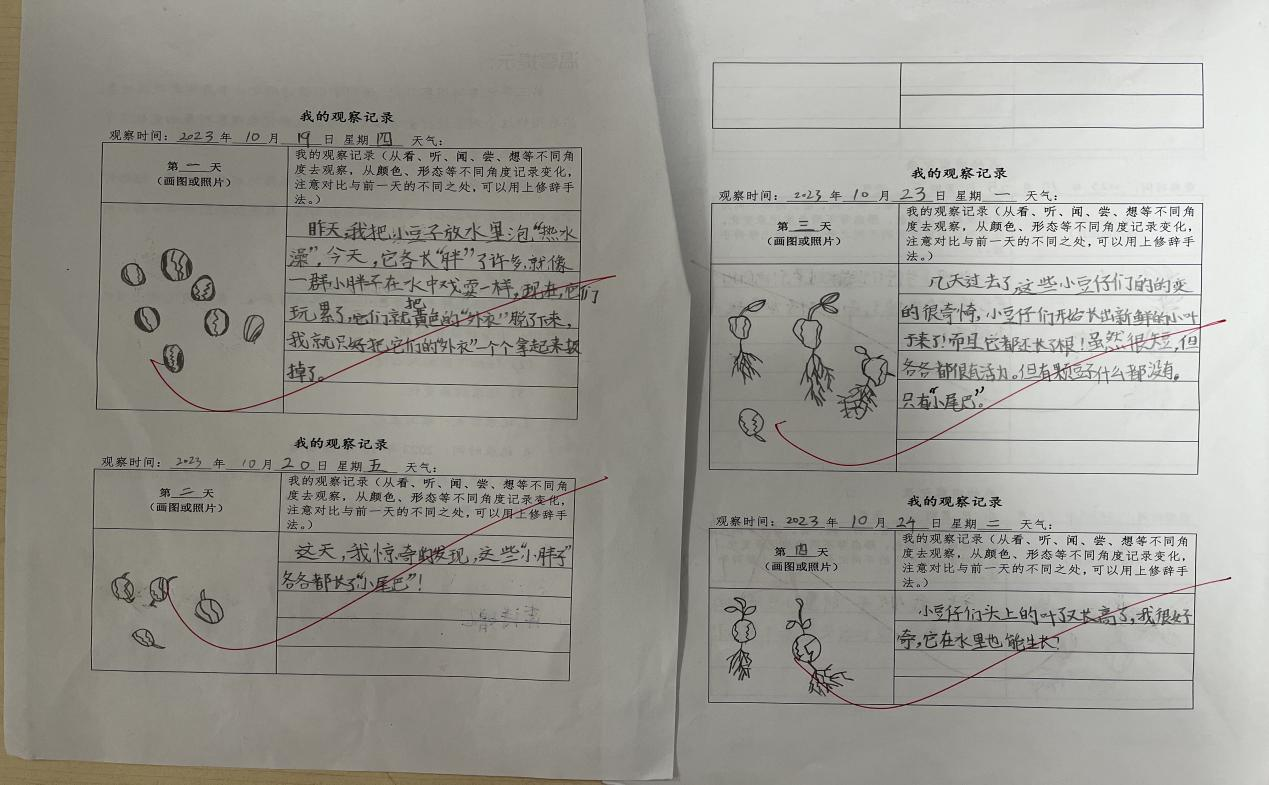 我的观察记录
观察时间：2023 年 10 月 19 日 星期 四 天气：
第 一 天
（画图或照片）
我的观察记录（从看、听、闻、尝、想等不同角
度去观察，从颜色、形态等不同角度记录变化，
注意对比与前一天的不同之处，可以用上修辞手
法。）
昨天，我把小豆子放水里泡“热水
澡”，今天，它各长“胖”了许多，就像
一群小胖子在水中戏耍一样，现在，它们
玩累了，它们就把黄色的“外衣”脱了下来，
我就只好把它们的“外衣”一个个拿起来扔
掉了。
我的观察记录
观察时间：2023 年 10 月 20 日 星期 五 天气：
第 二 天
（画图或照片）
我的观察记录（从看、听、闻、尝、想等不同角
度去观察，从颜色、形态等不同角度记录变化，
注意对比与前一天的不同之处，可以用上修辞手
法。）
这天，我惊奇的发现，这些“小胖子”
各各都长了“小尾巴”！
我的观察记录
观察时间：2023 年 10 月 23 日 星期 一 天气：
第 三 天
（画图或照片）
我的观察记录（从看、听、闻、尝、想等不同角
度去观察，从颜色、形态等不同角度记录变化，
注意对比与前一天的不同之处，可以用上修辞手
法。）
几天过去了，这些小豆仔们的的变
的很奇怪，小豆仔们开始长出新鲜的小叶
子来了！而且它都还长了根！虽然很短，但
各各都很有活力。但有颗豆子什么都没有。
只有“小尾巴”。
我的观察记录
观察时间：2023 年 10 月 24 日 星期 二 天气：
第 四 天
（画图或照片）
我的观察记录（从看、听、闻、尝、想等不同角
度去观察，从颜色、形态等不同角度记录变化，
注意对比与前一天的不同之处，可以用上修辞手
法。）
小豆仔们头上的叶子又长高了，我很好
奇，它在水里也能生长？